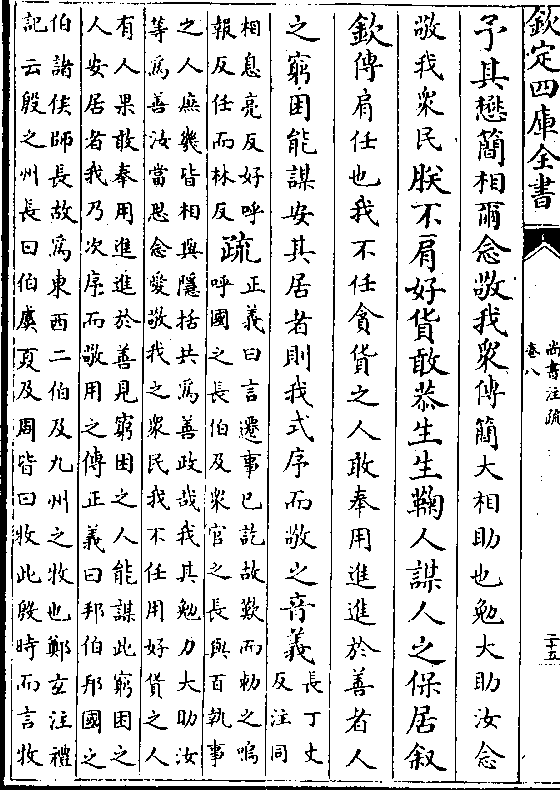 欽定四庫全書
尚書注疏
卷八
三十五
予其懋簡相爾念敬我衆傳簡大相助也勉大助汝念
敬我衆民朕不肩好貨敢恭生生鞠人謀人之保居叙
欽傳肩任也我不任貪貨之人敢奉用進進於善者人
之窮困能謀安其居者則我式序而敬之音義
長丁丈
反注同
相息亮反好呼
報反任而林反
疏
正義曰言遷事已訖故歎而勅之嗚
呼國之長伯及衆官之長與百執事
之人庶幾皆相與隱括共為善政哉我其勉力大助汝
等為善汝當思念愛敬我之衆民我不任用好貨之人
有人果敢奉用進進於善見窮困之人能謀此窮困之
人安居者我乃次序而敬用之傳正義曰邦伯邦國之
伯諸侯師長故為東西二伯及九州之牧也鄭玄注禮
記云殷之州長曰伯虞夏及周皆曰牧此殷時而言牧